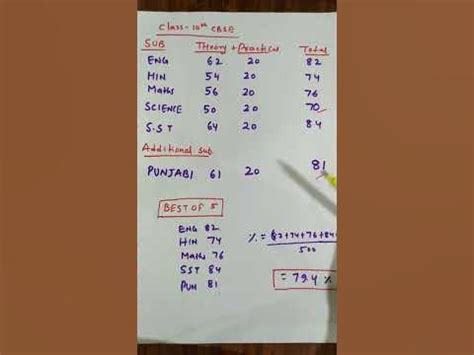 Class-10th CBSE
SUB Theory + Practical Total
ENG 62 20 82
HIN 54 20 74
Maths 56 20 76
SCIENCE 50 20 70
S.ST 64 20 84
Additional Sub.
PUNJABI 61 20 81
BEST OF 5
ENG 82
HIN 74
Maths 76
SST 84
PUN 81
% = 82+74+76+84
500
= 79.4 %